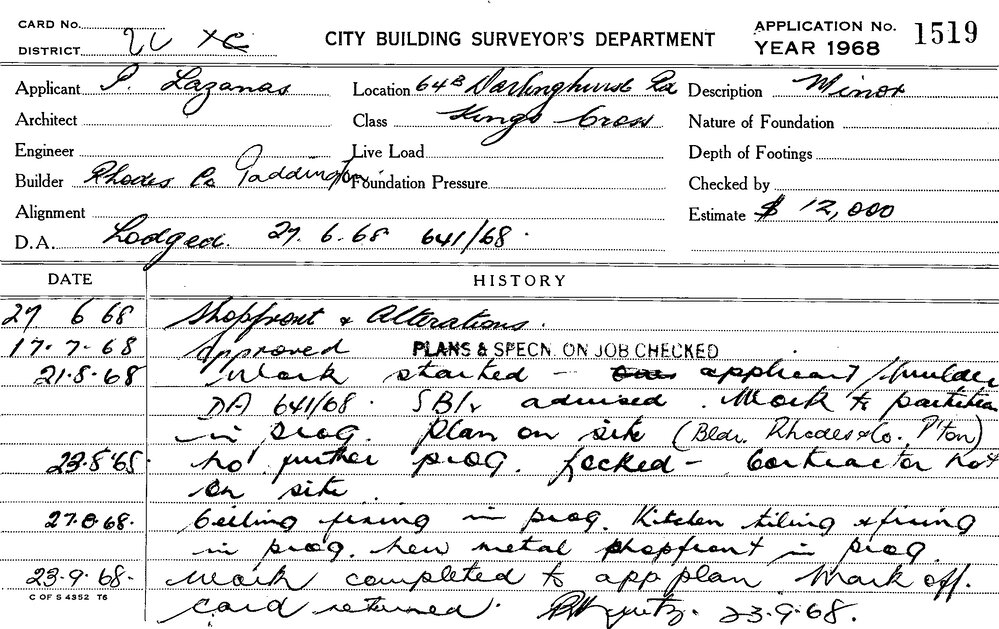 CARD No.
DISTRICT
CITY BUILDING SURVEYOR'S DEPARTMENT
APPLICATION No. 1519
YEAR 1968
Applicant P. Lazanas
Location 64B Darlinghurst Rd
Description Minor
Architect
Class Kings Cross
Nature of Foundation
Engineer
Live Load
Depth of Footings
Builder Rhodes Co Paddington
Foundation Pressure
Checked by
Alignment
Estimate $ 12,000
D.A. Lodged. 27.6.68 641/68.
DATE HISTORY
27 6 68 Shopfront & Alterations.
17.7.68 Approved PLANS & SPECN. ON JOB CHECKED
21.8.68 Work started - applicant/builder
DA 641/68. advised. Work to partition
in prog. Plan on site (Bldr. Rhodes & Co. P'ton)
no further prog. Locked - Contractor not
on site
27.8.68. Ceiling fixing in prog. Kitchen tiling & fixing
in prog. New metal shopfront in prog.
23.9.68. Work completed to app plan Mark off.
C OF S 4352 T6
card returned. 23.9.68.